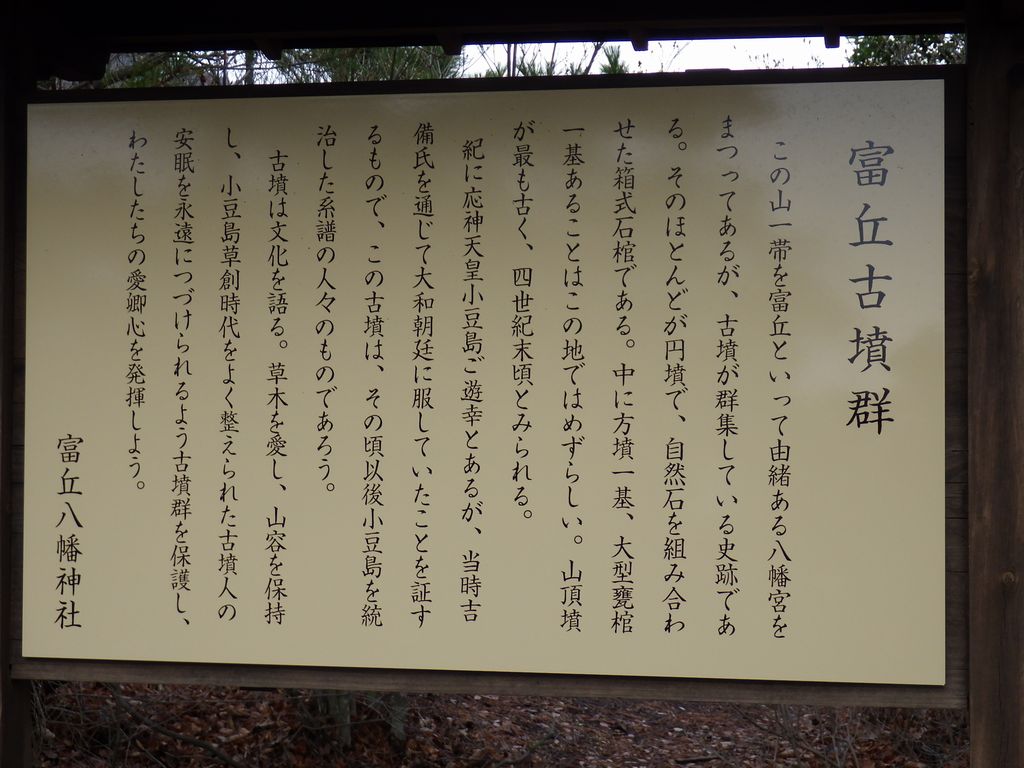 富丘古墳群
この山一帯を富丘といって由緒ある八幡宮を
まつってあるが、古墳が群集している史跡であ
る。そのほとんどが円墳で、自然石を組み合わ
せた箱式石棺である。中に方墳一基、大型甕棺
一基あることはこの地ではめずらしい。山頂墳
が最も古く、四世紀末頃とみられる。
紀に応神天皇小豆島ご遊幸とあるが、当時吉
備氏を通じて大和朝廷に服していたことを証す
るもので、この古墳は、その頃以後小豆島を統
治した系譜の人々のものであろう。
古墳は文化を語る。草木を愛し、山容を保持
し、小豆島草創時代をよく整えられた古墳人の
安眠を永遠につづけられるよう古墳群を保護し、
わたしたちの愛郷心を発揮しよう。
富丘八幡神社